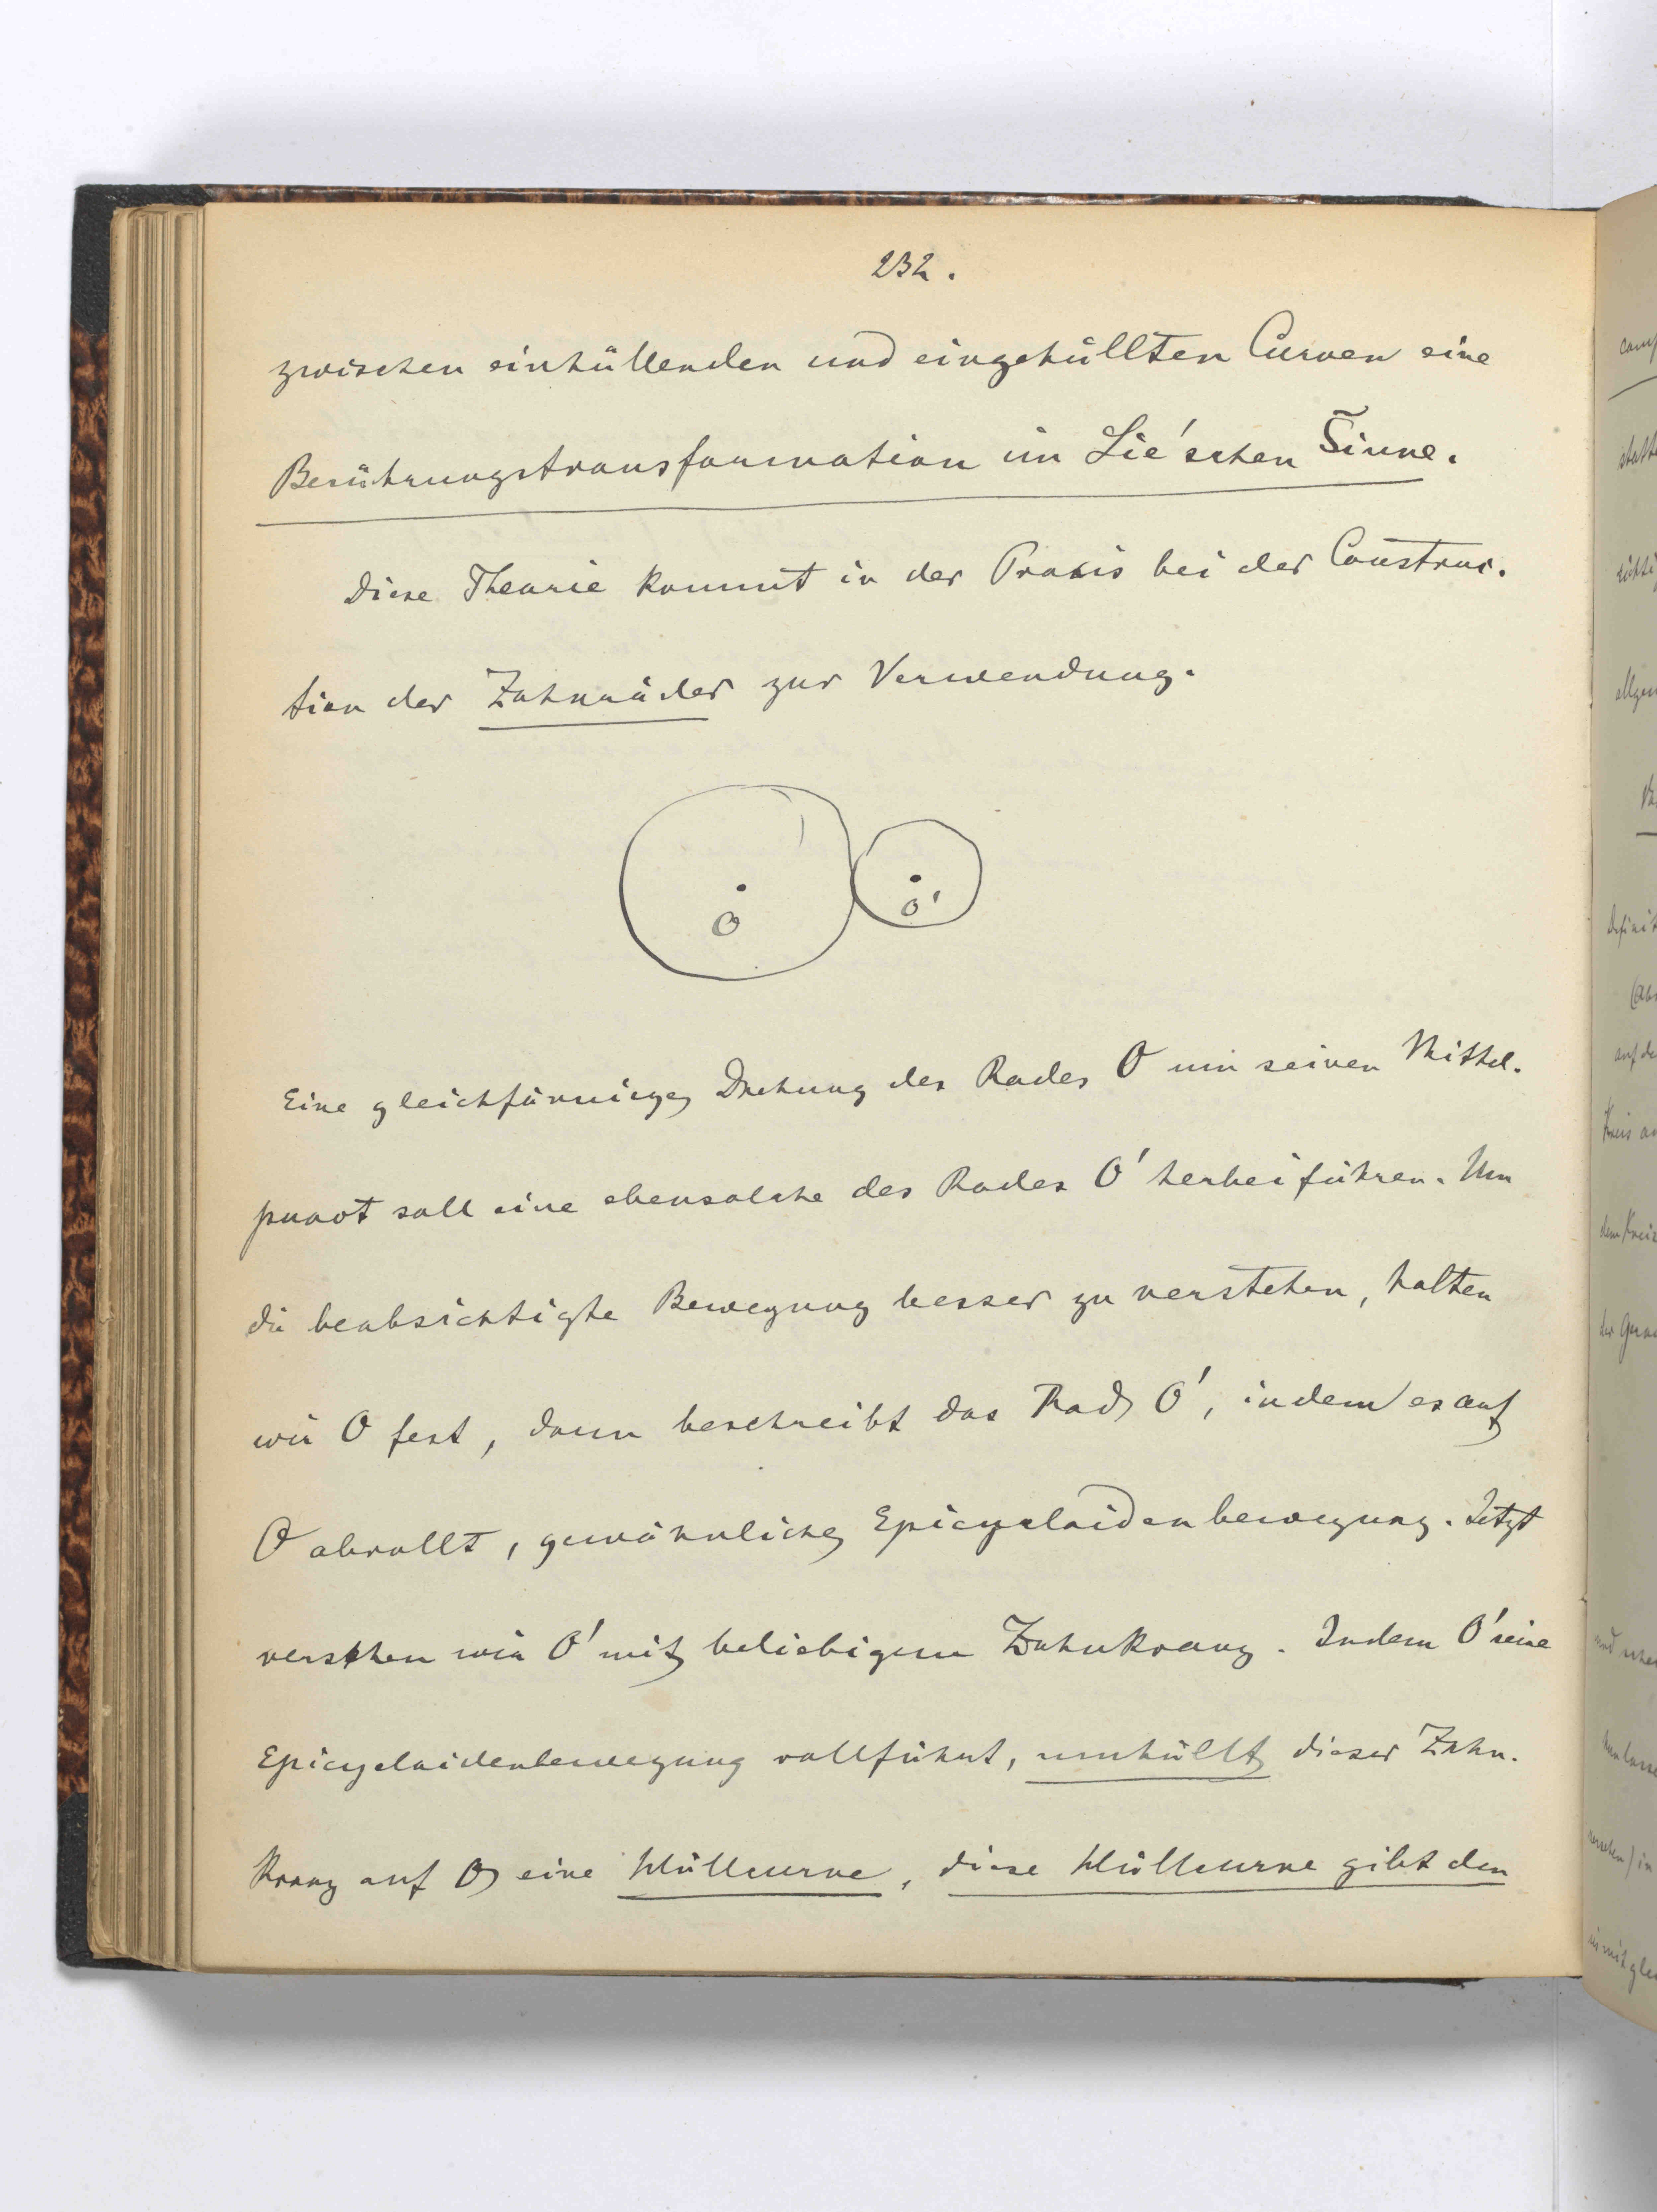 232.
zwischen einhüllenden und eingehüllten Curven eine
Berührungstransformation im Lie'schen Sinne.
Diese Theorie kommt in der Praxis bei der Construc-
tion der Zahnräder zur Verwendung.
O
O'
Eine gleichförmige Drehung des Rades O um seinen Mittel-
punct soll eine ebensolche des Rades O' herbeiführen. Um
die beabsichtigte Bewegung besser zu verstehen, halten
wir O fest, dann beschreibt das Rad O', indem es auf
O abrollt, gewöhnliche Epicycloidenbewegung. Jetzt
versehen wir O' mit beliebigem Zahnkranz. Indem O' seine
Epicycloidenbewegung vollführt, umhüllt dieser Zahn-
kranz auf O eine Hüllcurve, diese Hüllcurve gibt den